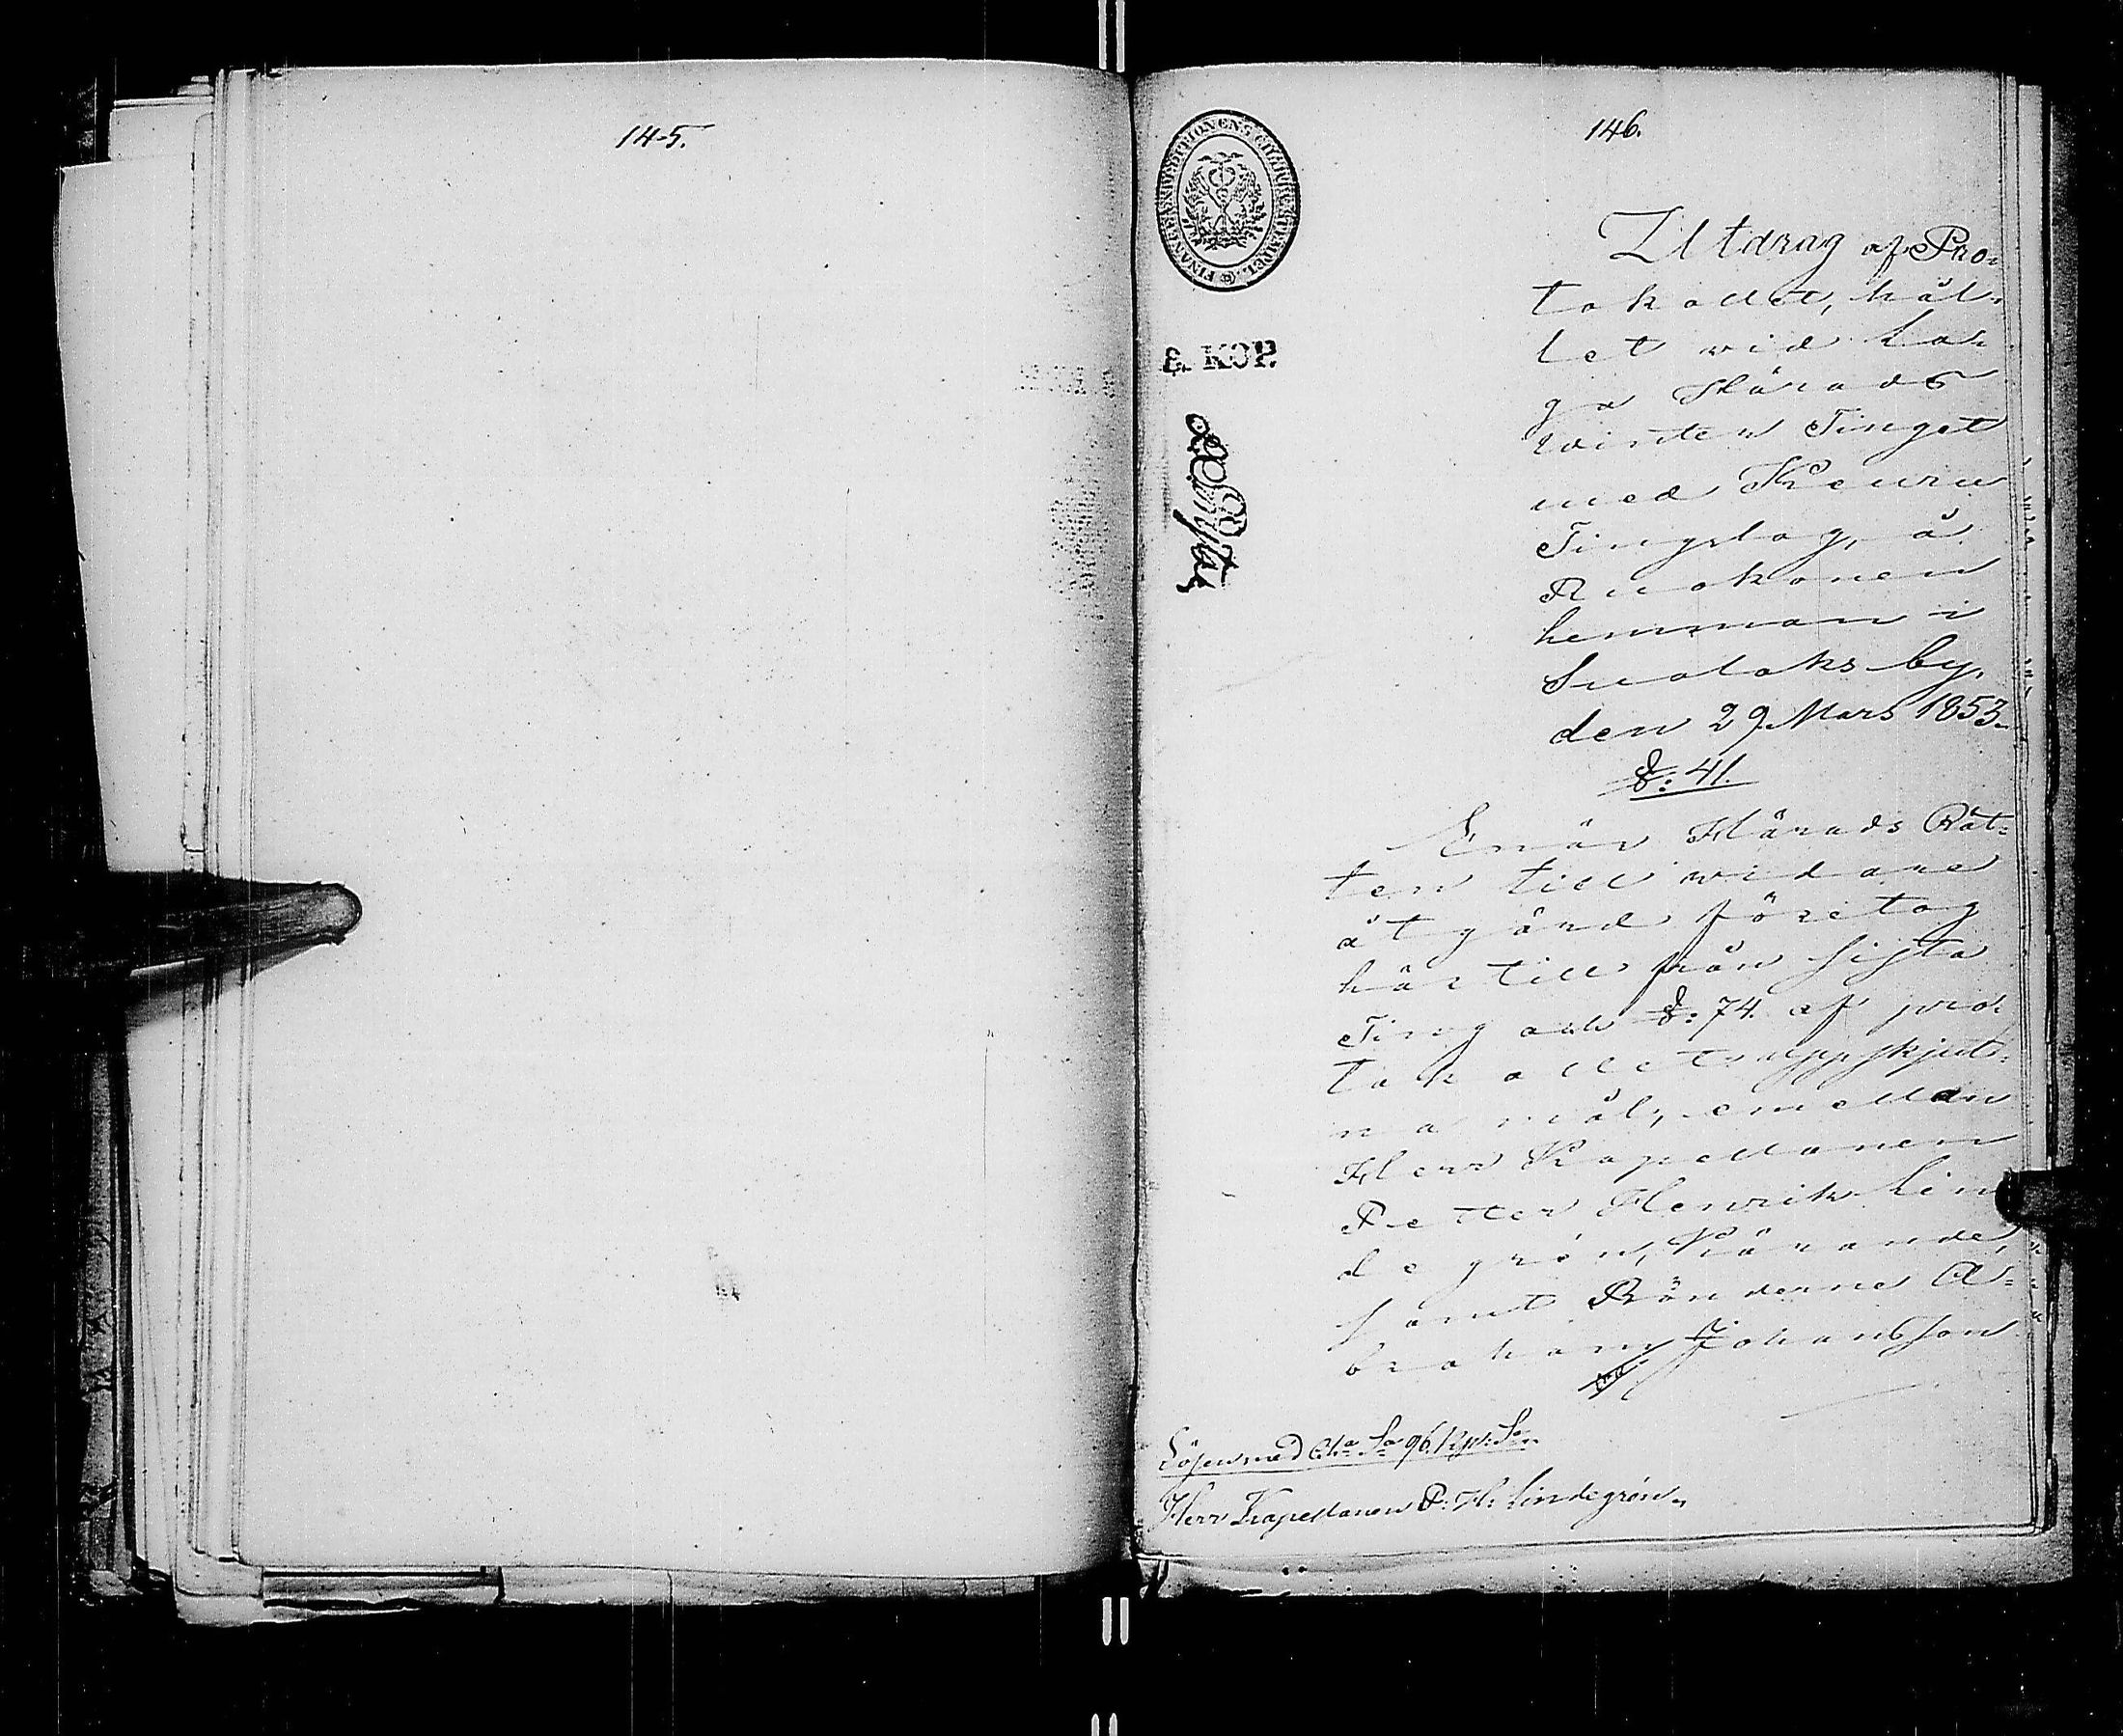 145.
146.
FINANCE EXPEDITIONENS CHARTÆ STEMPEL
3. KOP.
Utdrag af Pro-
tokollet, hål-
let vid Lau-
ga Härads
winter Tinget
med Keuru
Tingslag, å
Ruokonen
hemman i
Suolaks by,
den 29 Mars 1853.
§: 41.
Emär Härads Rät-
ten till widare
åtgärd företog
härtill från sista
Ting och §: 74. af pro-
tokollet uppskjut-
na mål, emellan
Herr Kapellanen
Petter Henrik Lin
degrén, Kärande,
samt Bönderne A-
braham Johansson
Lösen med 96. Kop: S:r.
Herr Kapellanen P: H: Lindegrén.